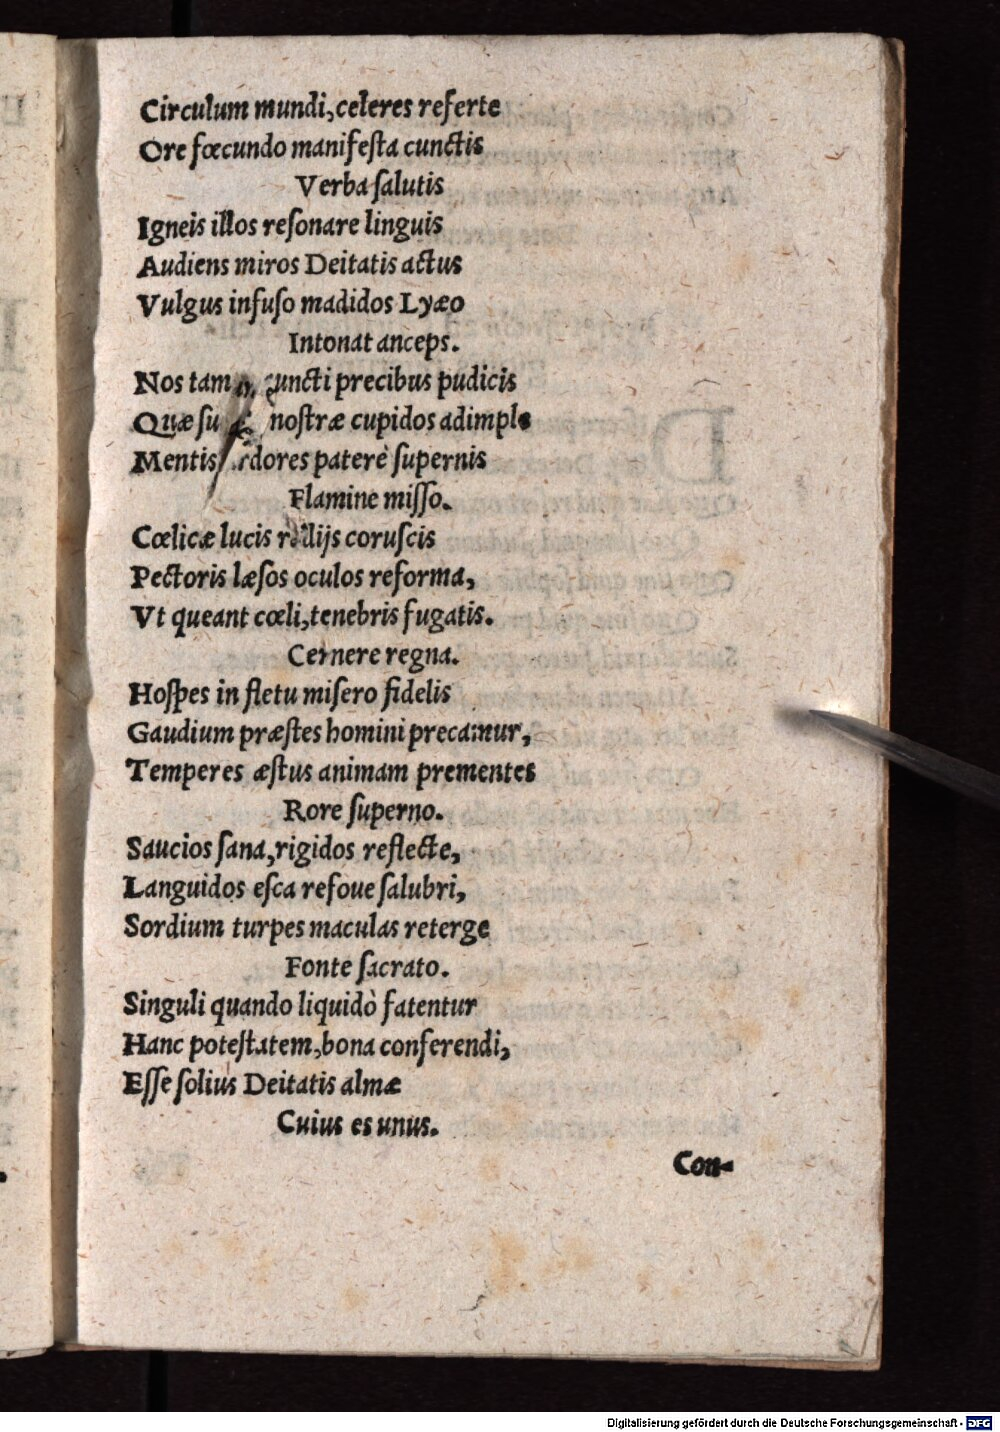 Circulum mundi, celeres referte
Ore fœcundo manifeſta cunctis
Verba ſalutis
Igneis illos reſonare linguis
Audiens miros Deitatis actus
Vulgus infuſo madidos Lyæo
Intonat anceps.
Nos cuncti precibus pudicis
noſtræ cupidos adimple
Mentis ardores paterè ſupernis
Flamine miſſo.
Cœlicæ lucis radijs coruſcis
Pectoris læſos oculos reforma,
Vt queant cœli, tenebris fugatis.
Cernere regna.
Hoſpes in fletu miſero fidelis
Gaudium præſtes homini precamur,
Temperes æſtus animam prementes
Rore ſuperno.
Saucios ſana, rigidos reflecte,
Languidos eſca refoue ſalubri,
Sordium turpes maculas reterge
Fonte ſacrato.
Singuli quando liquidò fatentur
Hanc poteſtatem, bona conferendi,
Eſſe ſolius Deitatis almæ
Cuius es unus.
Con-
Digitalisierung gefördert durch die Deutsche Forschungsgemeinschaft - DFG